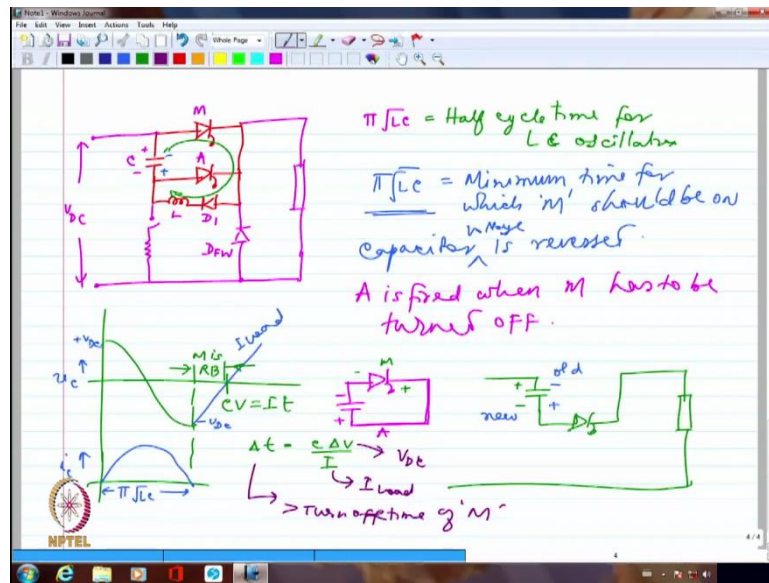 Note1 - Windows Journal
File Edit View Insert Actions Tools Help
Whole Page
B
M
+
C
-
-
+
A
L
D1
VDC
DFW
π√LC = Half cycle time for
LC oscillation
π√LC = Minimum time for
which 'M' should be on
voltage
capacitor ^ is reversed.
A is fired when M has to be
turned OFF.
+VDC
M is
RB
I Load
vc ↑
CV = It
-VDC
ic ↑
π√LC
M
-
+
+
-
A
old
+
-
-
+
new
Δt = CΔV → VDC
I
→ I Load
> Turn off time of 'M'
NPTEL
4/4
4